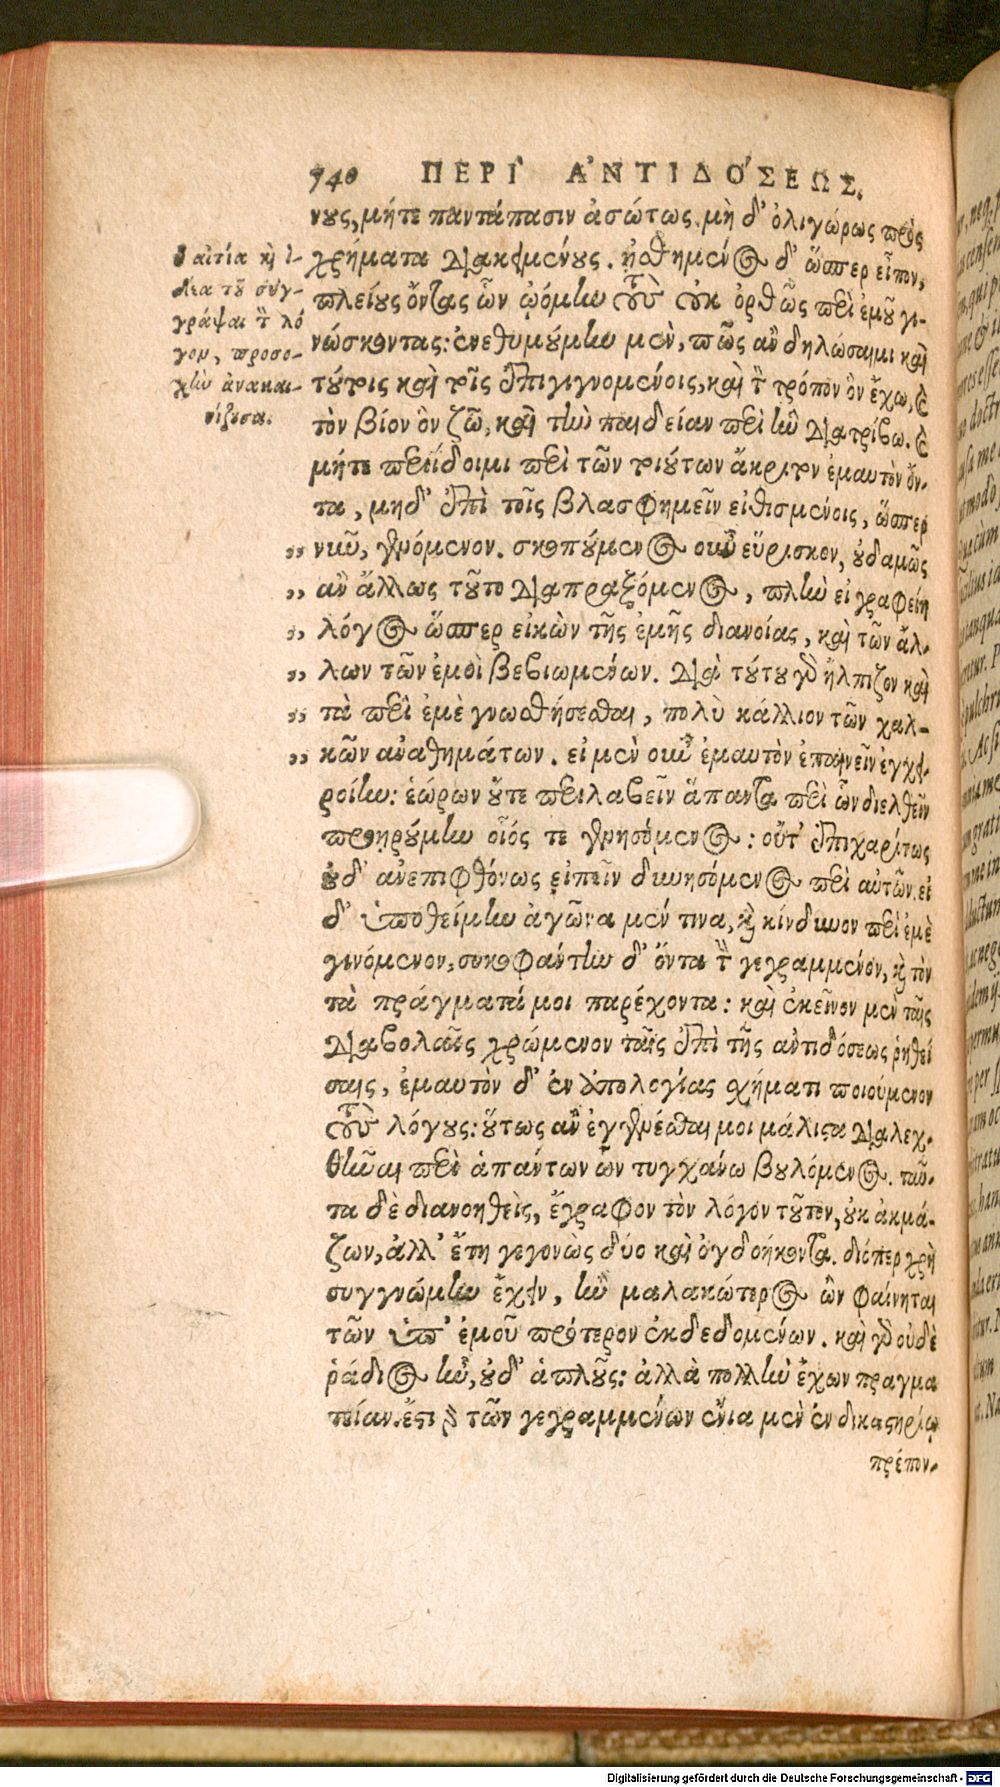 740 ΠΕΡΙ ἈΝΤΙΔΌΣΕΩΣ.
νους, μήτε παντάπασιν ἀσώτως, μὴ δ' ὀλιγώρως πρὸς
χρήματα διακειμένους. ᾐσθημένος δ' ὥσπερ εἶπον,
πλείους ὄντας ὧν ᾠόμην τοὺς οὐκ ὀρθῶς περὶ ἐμοῦ γι-
νώσκοντας: ἐνεθυμούμην μὲν, πῶς ἂν δηλώσαιμι καὶ
τούτοις καὶ τοῖς ἐπιγιγνομένοις, καὶ τὸν τρόπον ὃν ἔχω, καὶ
τὸν βίον ὃν ζῶ, καὶ τὴν παιδείαν περὶ ἣν διατρίβω. καὶ
μήτε περιίδοιμι περὶ τῶν τοιούτων ἄκριτον ἐμαυτὸν ὄν-
τα, μηδ' ἐπὶ τοῖς βλασφημεῖν εἰθισμένοις, ὥσπερ
,, νῦν, γενόμενον. σκοπούμενος οὖν εὕρισκον, οὐδαμῶς
,, ἂν ἄλλως τοῦτο διαπραξόμενος, πλὴν εἰ γραφείη
,, λόγος ὥσπερ εἰκὼν τῆς ἐμῆς διανοίας, καὶ τῶν ἄλ-
,, λων τῶν ἐμοὶ βεβιωμένων. διὰ τούτου γὰρ ἤλπιζον καὶ
,, τὰ περὶ ἐμὲ γνωσθήσεσθαι, πολὺ κάλλιον τῶν χαλ-
,, κῶν ἀναθημάτων. εἰ μὲν οὖν ἐμαυτὸν ἐπαινεῖν ἐγχει-
ροίην: ἑώρων οὔτε περιλαβεῖν ἅπαντα περὶ ὧν διελθεῖν
προῃρούμην οἷός τε γενησόμενος: οὔτ' ἐπιχαρίτως
οὐδ' ἀνεπιφθόνως εἰπεῖν δυνησόμενος περὶ αὐτῶν. εἰ
δ' ὑποθείμην ἀγῶνα μέν τινα, καὶ κίνδυνον περὶ ἐμὲ
γινόμενον, συκοφάντην δ' ὄντα τὸν γεγραμμένον, καὶ τὸν
τὰ πράγματά μοι παρέχοντα: καὶ ἐκεῖνον μὲν ταῖς
διαβολαῖς χρώμενον ταῖς ἐπὶ τῆς ἀντιδόσεως ῥηθεί
σαις, ἐμαυτὸν δ' ἐν ἀπολογίας σχήματι ποιούμενον
τοὺς λόγους: οὕτως ἂν ἐγγενέσθαι μοι μάλιστα διαλεχ-
θῆναι περὶ ἁπάντων ὧν τυγχάνω βουλόμενος. ταῦ-
τα δὲ διανοηθεὶς, ἔγραφον τὸν λόγον τοῦτον, οὐκ ἀκμά-
ζων, ἀλλ' ἔτη γεγονὼς δύο καὶ ὀγδοήκοντα. διόπερ χρὴ
συγγνώμην ἔχειν, ἢν μαλακώτερος ὢν φαίνηται
τῶν ὑπ' ἐμοῦ πρότερον ἐκδεδομένων. καὶ γὰρ οὐδὲ
ῥάδιος ἦν, οὐδ' ἁπλοῦς: ἀλλὰ πολλὴν ἔχων πραγμα
τείαν. ἔστι δὲ τῶν γεγραμμένων ἔνια μὲν ἐν δικαστηρίῳ
πρέπον-
Ἡ αἰτία καὶ ἰ-
δέα τοῦ συγ-
γράψαι τὸν λό
γον, προσο-
χὴν ἀνακαι-
νίζουσα.
Digitalisierung gefördert durch die Deutsche Forschungsgemeinschaft - DFG